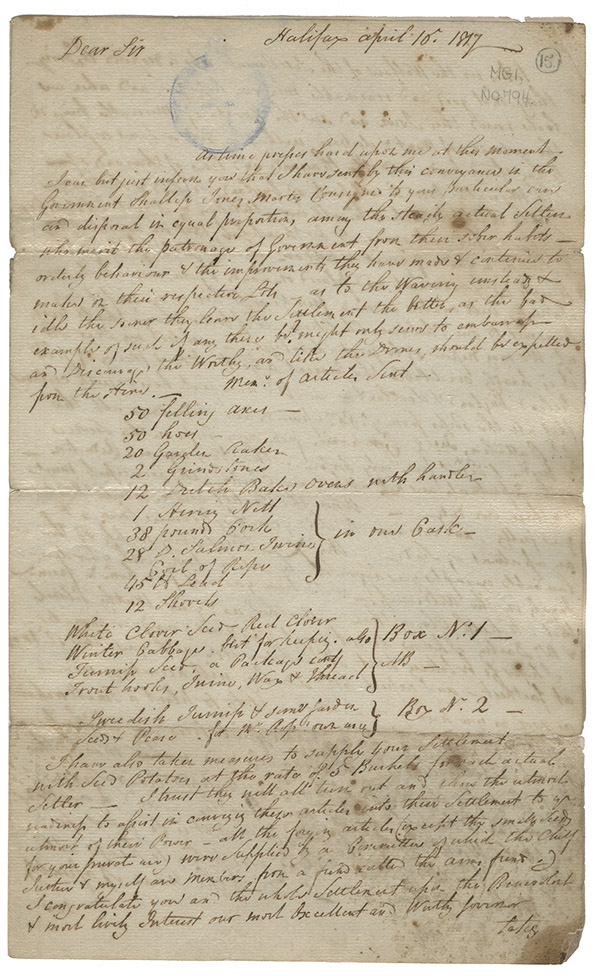 Halifax april 16. 1817
Dear Sir
15
MG1,
No. 794
As time presses hard upon me at this moment
I can but just inform you that I have sent by this conveyance in the
Government Shallop James Master Consigned to your particular care
and disposal in equal proportions among the steady actual Settlers
who merit the patronage of Government from their sober habits —
orderly behaviour & the improvements they have made & continue to
make on their respective Lots as to the Wavering unsteady &
idle the sooner they leave the Settlement the better, as the bad
example of such if any there be, might only serve to embarrass
and Discourage the Worthy, and like the Drones, should be expelled
from the Hive. — Mem. of articles Sent
50 felling axes —
50 hoes —
20 Garden Rakes
2 Grindstones
12 Dutch Bake ovens with handles
1 Nett
38 pounds Cork
28 Do. Salmon Twine
Coil of Rope
45 lb Lead
in one Cask —
12 Shovels
White Clover Seed Red Clover
Winter Cabbage, best for keeping. also
Turnip Seed, a Package
Trout hooks, Twine, Wax & Thread
Box No. 1 —
AB —
Swedish Turnip & some Garden
Seeds & Pease for Mr. own use
Box No. 2 —
I have also taken measures to supply your Settlement
with Seed Potatoes at the rate of 5 Bushels for each actual
Settler — I trust they will all turn out and shew the utmost
readiness to assist in conveying these articles into their Settlement to ye
utmost of their Power — all the forgoing articles (except the small Seeds
for your private use) were supplied by a Committee of which the Chief
Justice & myself are members from a fund called the arms fund.
I congratulate you and the whole Settlement upon the Benevolent
& most lively Interest our most Excellent and Worthy Governor
takes